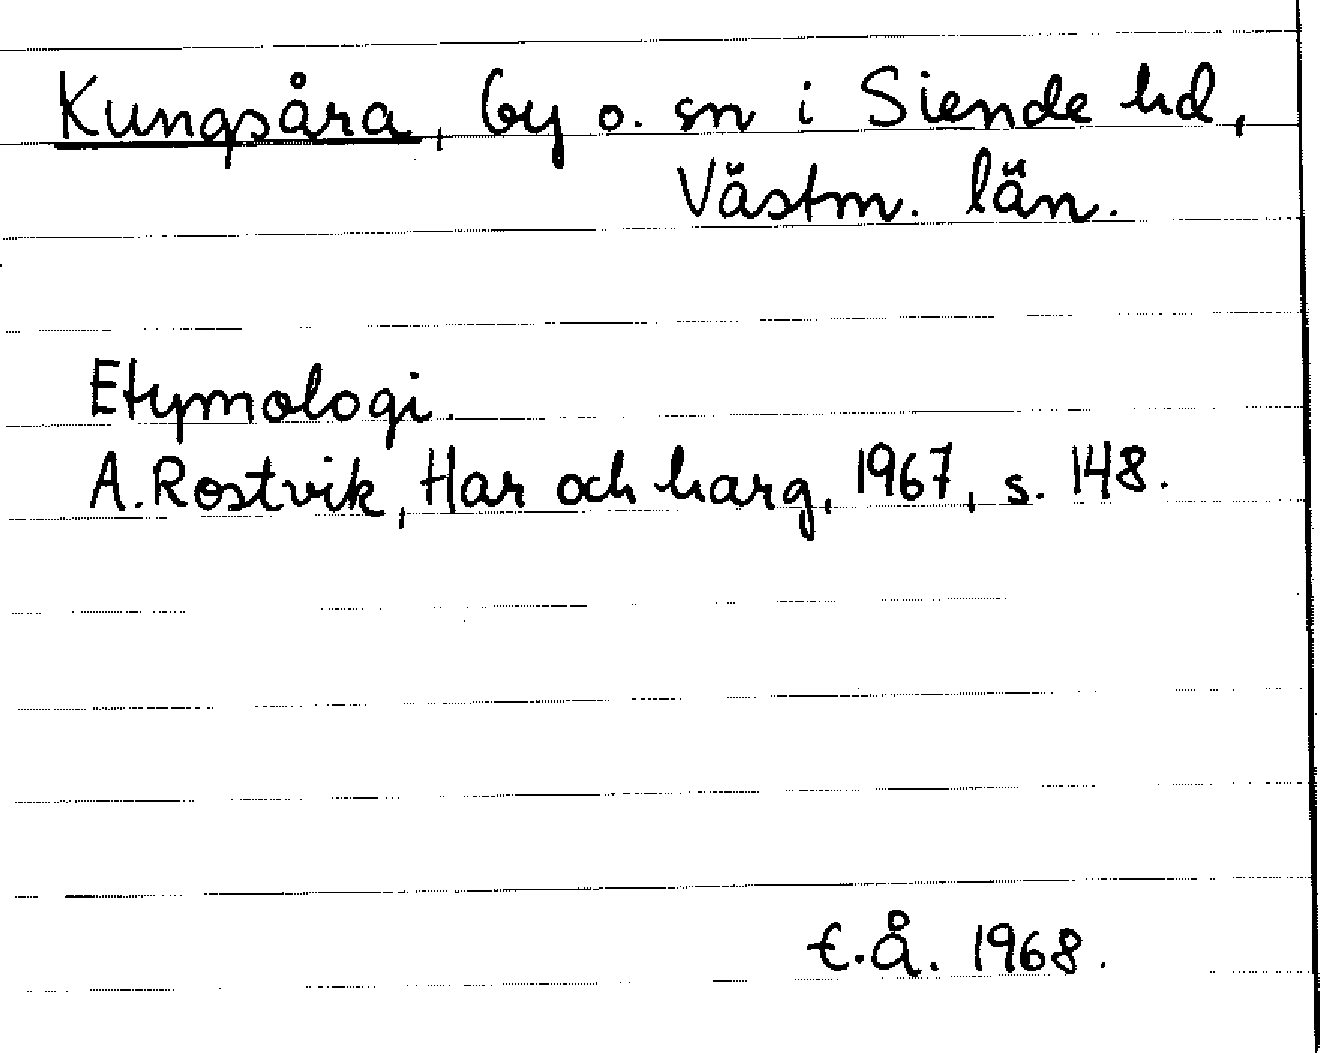 Kungsåra, by o. sn i Siende hd,
Västm. län.
Etymologi.
A. Rostvik, Har och harg, 1967, s. 148.
E.Å. 1968.